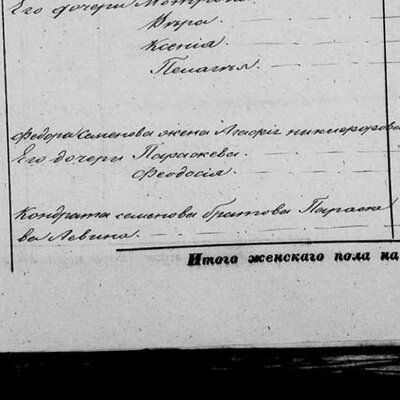 Его дочери Матрена
Вѣра
Ксенія.
Пелагъя.
Федора Семенова жена Агафія никифорова
Его дочери Параскева.
Феодосія.
Кондрата семенова братова Параске
ва Левина.
Итого женскаго пола на